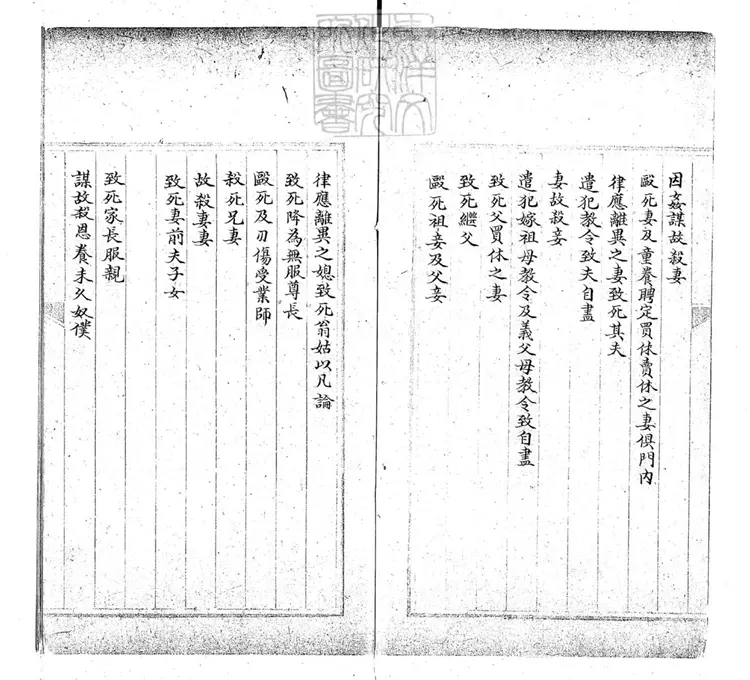 因姦謀故殺妻
毆死妻及童養聘定買休賣休之妻俱門內
律應離異之妻致死其夫
違犯教令致夫自盡
妻故殺妾
違犯嫁祖母教令及義父母教令致自盡
致死父買休之妻
致死繼父
毆死祖妾及父妾
律應離異之媳致死翁姑以凡論
致死降為無服尊長
毆死及刃傷受業師
殺死兄妻
故殺妻妻
致死妻前夫子女
致死家長服親
謀故殺恩養未久奴僕